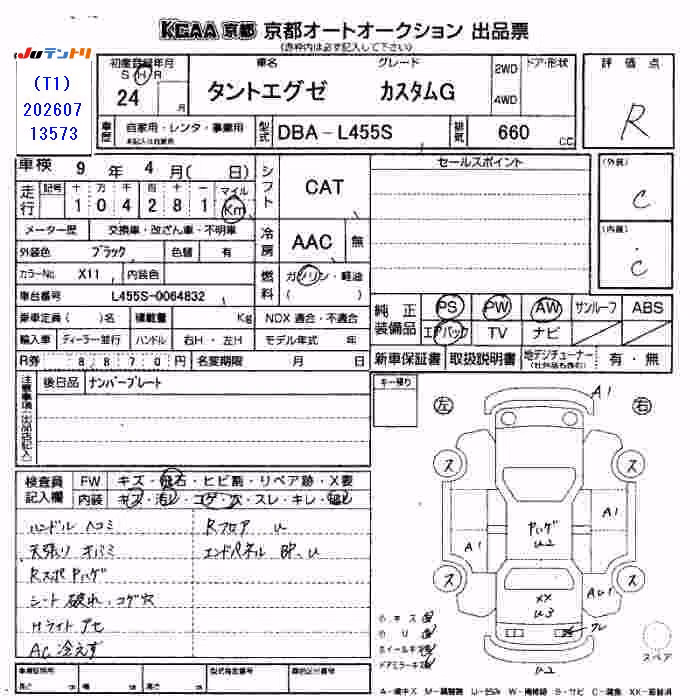 KCAA 京都 京都オートオークション 出品票
(赤枠内は必ず記入して下さい)
JUテントリ
(T1)
202607
13573
初度登録年月
S H R
24 月
車名 グレード
タントエグゼ カスタムG
2WD
4WD
ドア・形状
評価点
R
車歴 自家用・レンタ・事業用
型式 DBA-L455S
排気 660 CC
車検 9年 4月( 日)
走行 記号 十 万 千 百 十 一 マイル
1 0 4 2 8 1 Km
シフト CAT
セールスポイント
(外装)
C
(内装)
C
メーター歴 交換車・改ざん車・不明車
冷房 AAC 無
外装色 ブラック 色替 有
カラーNo. X11 内装色
燃料 ガソリン・軽油
( )
車台番号 L455S-0064832
乗車定員( )名 積載量 Kg NOX 適合・不適合
輸入車 ディーラー並行 ハンドル 右H・左H モデル年式 年
R券 8 8 7 0 円 名変期限 月 日
純正装備品 PS PW AW サンルーフ ABS
エアバック TV ナビ
新車保証書 取扱説明書 地デジチューナー 有・無
注意事項(出品店記入)
後日品 ナンバープレート
キー預り
左 右
検査員記入欄
FW キズ・飛石・ヒビ割・リペア跡・X要
内装 キズ・汚レ・コゲ・穴・スレ・キレ・
ハンドル ヘコミ
Rフロア U
天張り
エンドパネル BP、U
Rスポ Pハゲ
シート 破れ、コゲ穴
Hライト
AC 冷えず
A1
ス ス
A1
Pハゲ
U2
A1
ス ス
AU1
XX
U3
U2
小キズ
小U
ホイールキズ
ドアミラーキズ
スペア
車両証明用
長さ cm 幅 cm 高さ cm
型式指定番号
類別区分番号